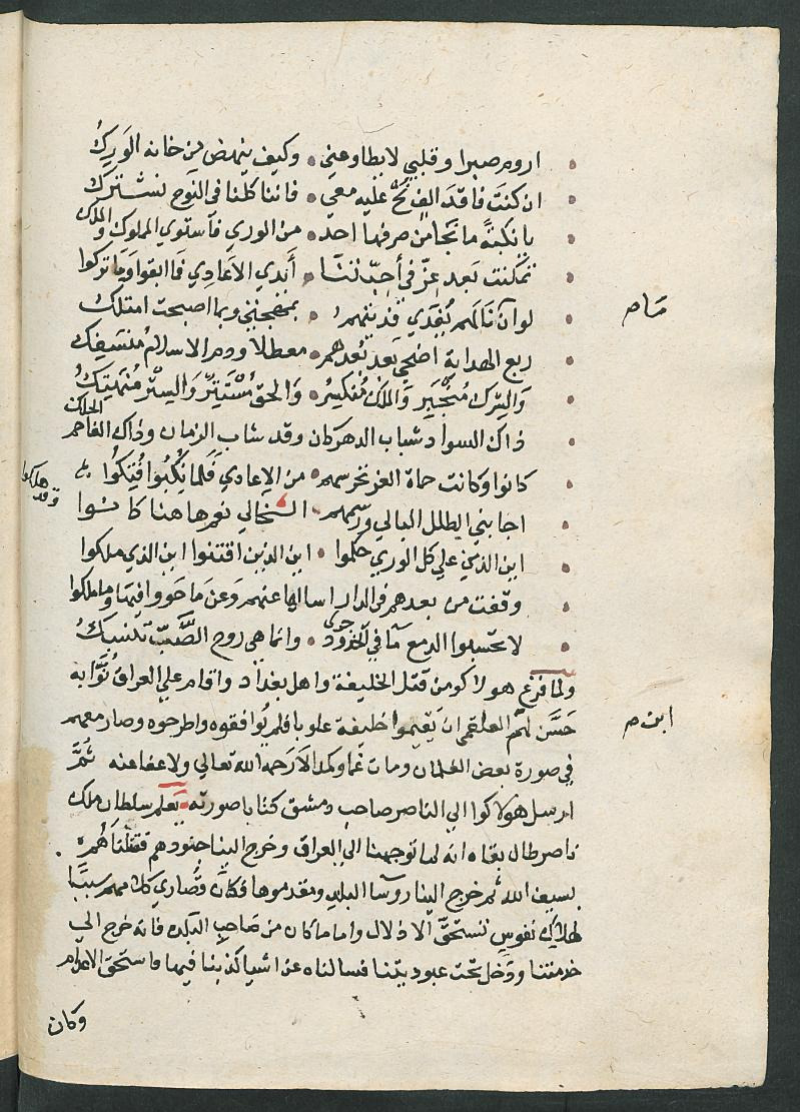 اروم صبرا وقلبي لا يطاوعني • وكيف ينهض من خانه الوَرِكُ
ان كنتَ فاقدَ الفٍ نُحْ عليه معي • فاننا كلنا في النوح نشتركُ
يا نكبةً ما نجا من صرفها احد • من الوري فاستوي المملوك والملك
تمكنت بعد عزٍّ في أحبّتنا • أيدي الاعادي فما ابقوا وما تركوا
لو ان نالهم يُفْدَي فديتهم • بمهجتي وبما اصبحت امتلك
ما م
ربع الهداية اضحي بعد بُعدهم • معطلا ودم الاسلام منسفك
والحق مُسْتَتِرٌ والستر مُنهتكُ
ذاك السواد شباب الدهر كان وقد شاب الزمان وذاك الفاحم الحلك
كانوا وكانت حماة العز تحرسهم • من الاعادي فلما نُكِبُوا فُتِكُوا
وقد هلكوا
اجابني الطلل البالي ورسمهم • الخالي نعم ها هنا كانوا
اين الذين علي كل الوري حكموا • اين الذين اقتنوا اين الذي ملكوا
وقفت من بعدهم في الدار اسالها عنهم وعن ما حووا فيها وما ملكوا
لا تحسبوا الدمع ما في الخدود جري • وانما هي روح الصَّبّ تنسبكُ
ولما فرغ هولاكو من قتل الخليفة واهل بغداد واقام علي العراق نُوّابه
حَسَّن لهم العلقمي ان يقيموا خليفة علويا فلم يُوافقوه واطرحوه وصار معهم
ابن م
في صورة بعض الغلمان ومات غما وكمدا لا رحمه الله تعالي ولا عفا عنه ثمَّ
ارسل هولاكوا الي الناصر صاحب دمشق كتابا صورته يعلم سلطان ملك
ناصر طال بقاه انه لما توجهنا الي العراق وخرج الينا جنودهم فقتلناهم
بسيف الله ثم خرج الينا روسا البلد ومقدموها فكان قُصاري كلامهم سببا
لهلاك نفوس تستحقّ الاذلال واما ما كان من صَاحب البلده فانه خرج الي
خدمتنا ودخل تحت عبوديتنا فسالناه عن اشيا كذبنا فيها فاستحق الاعدام
وكان